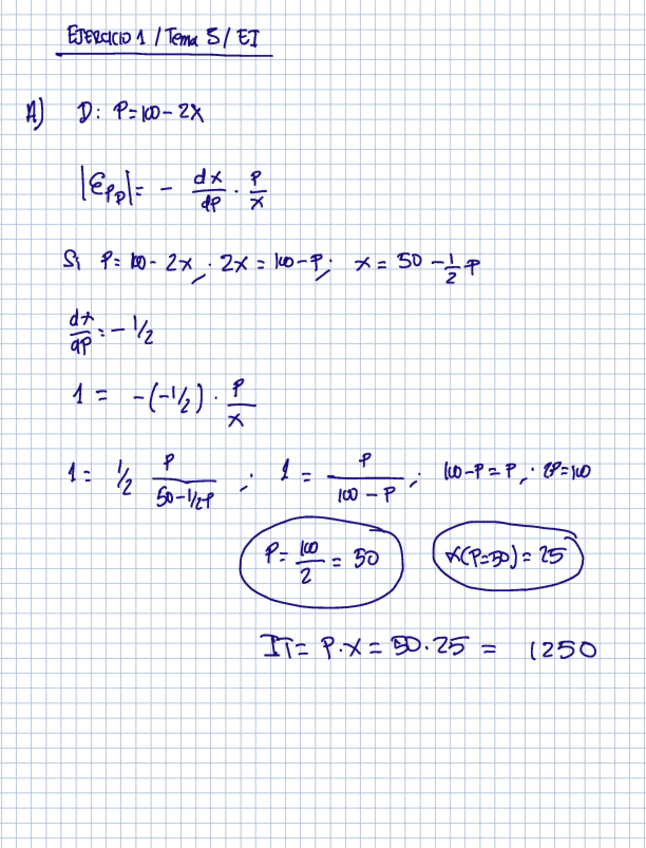 EJERCICIO 1 / Tema 5 / EI
A) D: P=100-2X
|εPD| = - dx/dp · P/X
Si P=100-2X; 2X=100-P; X=50-1/2P
dx/dp = -1/2
1 = -(-1/2) · P/X
1 = 1/2 P/(50-1/2P) ; 1 = P/(100-P) ; 100-P=P; 2P=100
P= 100/2 = 50 X(P=50)=25
IT= P·X = 50·25 = 1250